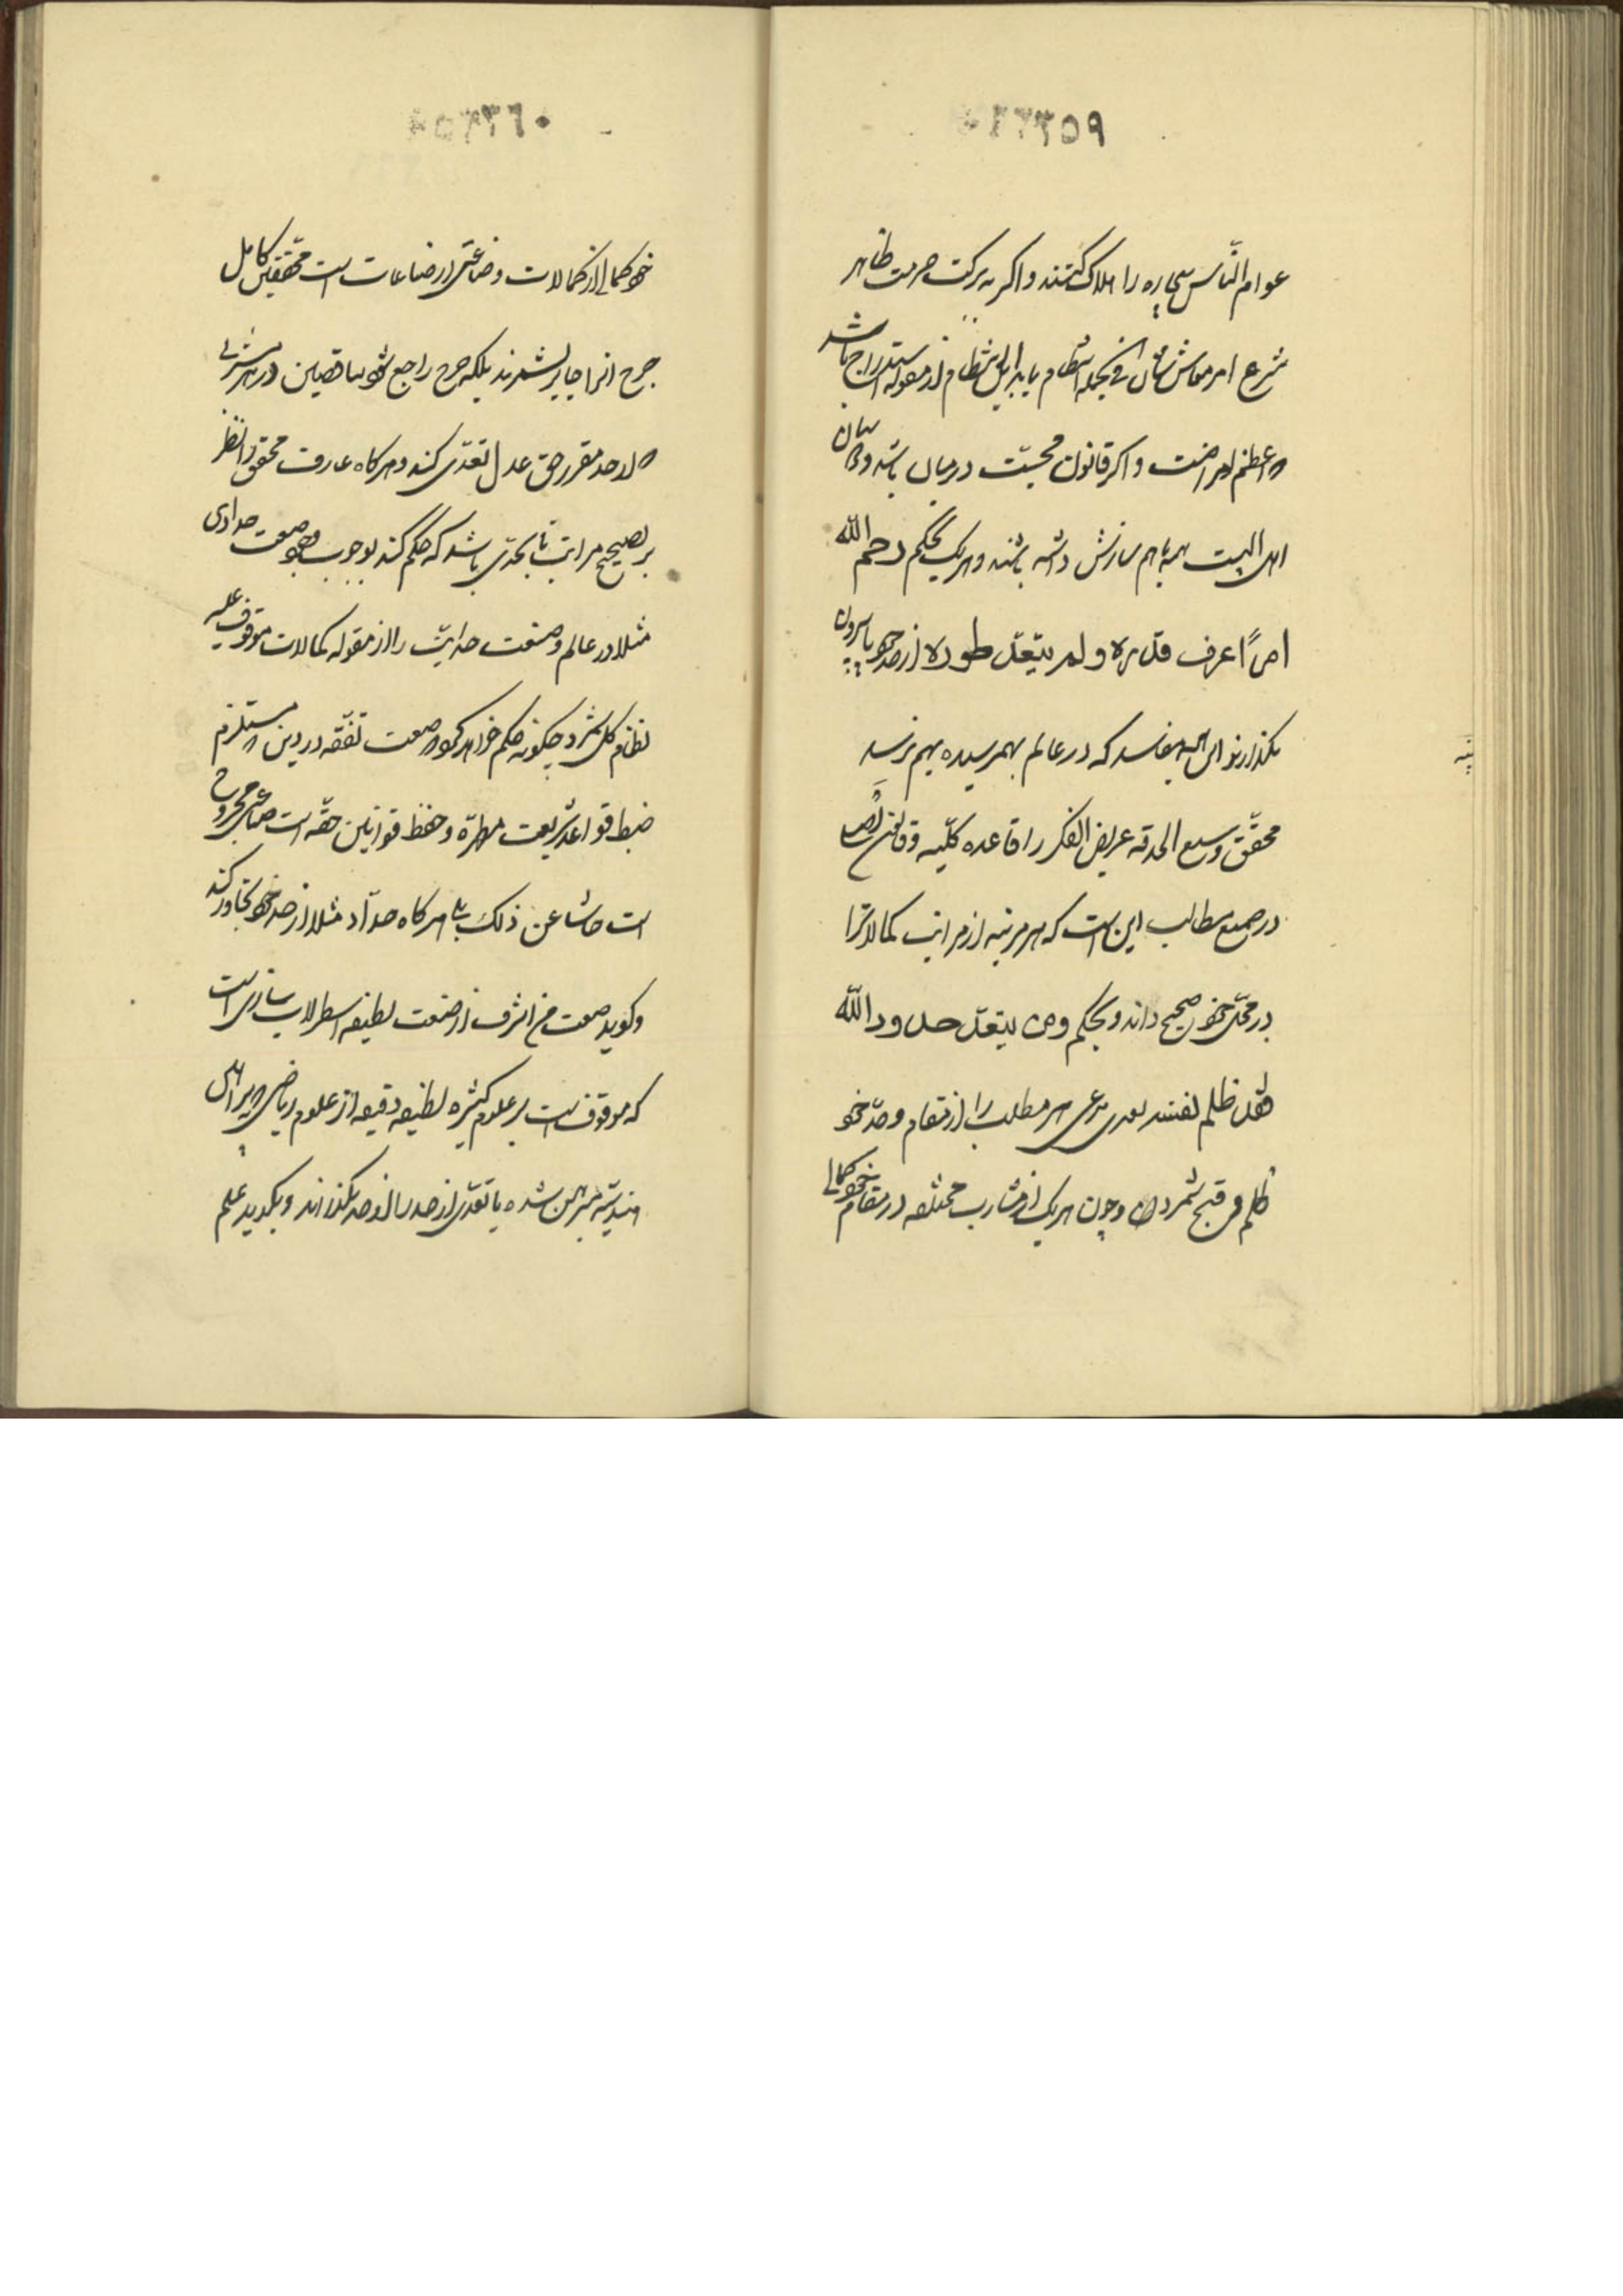 ٩٥٣٣٦
عوام النّاس بیچاره را هلاک کنند واکر ببرکت حرمت ظاهر
شرع امر معاش شان فی الجمله انتظام یابد این انتظام از مقوله استدراج باشد
و اعظم امر اضت و اکر قانون محبّت در میان باشد و میان
اهل البیت همه باهم سازش داشته باشند و هریک بحکم رحم الله
امرأً عرف قدره ولم یتعدّ طوره از حد خود پا بیرون
نکذارند این همه مفاسد که در عالم بهمرسیده بهم نرسد
محقّق وسیع الحدقه عریض الفکر را قاعده کلّیه وقانون
در جمیع مطالب این است که هر مرتبه از مراتب کمالاترا
در محلّ خود صحیح داند وبحکم ومن یتعدّ حدود الله
فقد ظلم نفسه تعدی مدعی هر مطلب را از مقام وحدّ خود
ظلم و قبیح شمرد و چون هریک از مشارب مختلفه در مقام خود کمالی
٠٦٣٣٥
خود کمالی از کمالات وصناعتی از صناعات است محقّقین کامل
جرح انرا جایز نشمرند بلکه جرح راجع شود بناقصین در هر مشربی
که از حد مقرر حق عدل تعدّی کند وهرکاه عارف محقق را نظر
بر تصحیح مراتب تا بحدّی باشد که حکم کند بوجوب وجود صنعت حدادی
مثلا در عالم وصنعت حدادیت را از مقوله کمالات موقوف علیه
نظام کل شمرد چکونه حکم خواهد کرد که صنعت تفقّه در دین که مستلزم
ضبط قواعد شریعت مطهرّه وحفظ قوانین حقّه است صناعتی مجروح
است حاشا عن ذلک بلی هرکاه حدّاد مثلا از حد خود تجاوز کند
وکوید صنعت من اشرف از صنعت لطیفه اسطرلاب سازی است
که موقوف است بر علوم کثیره لطیفه دقیقه از علوم ریاضی که ببراهین
هندسیّه مبرهن شده یا تعدّی از حد را از حد بکذراند و بکوید علم